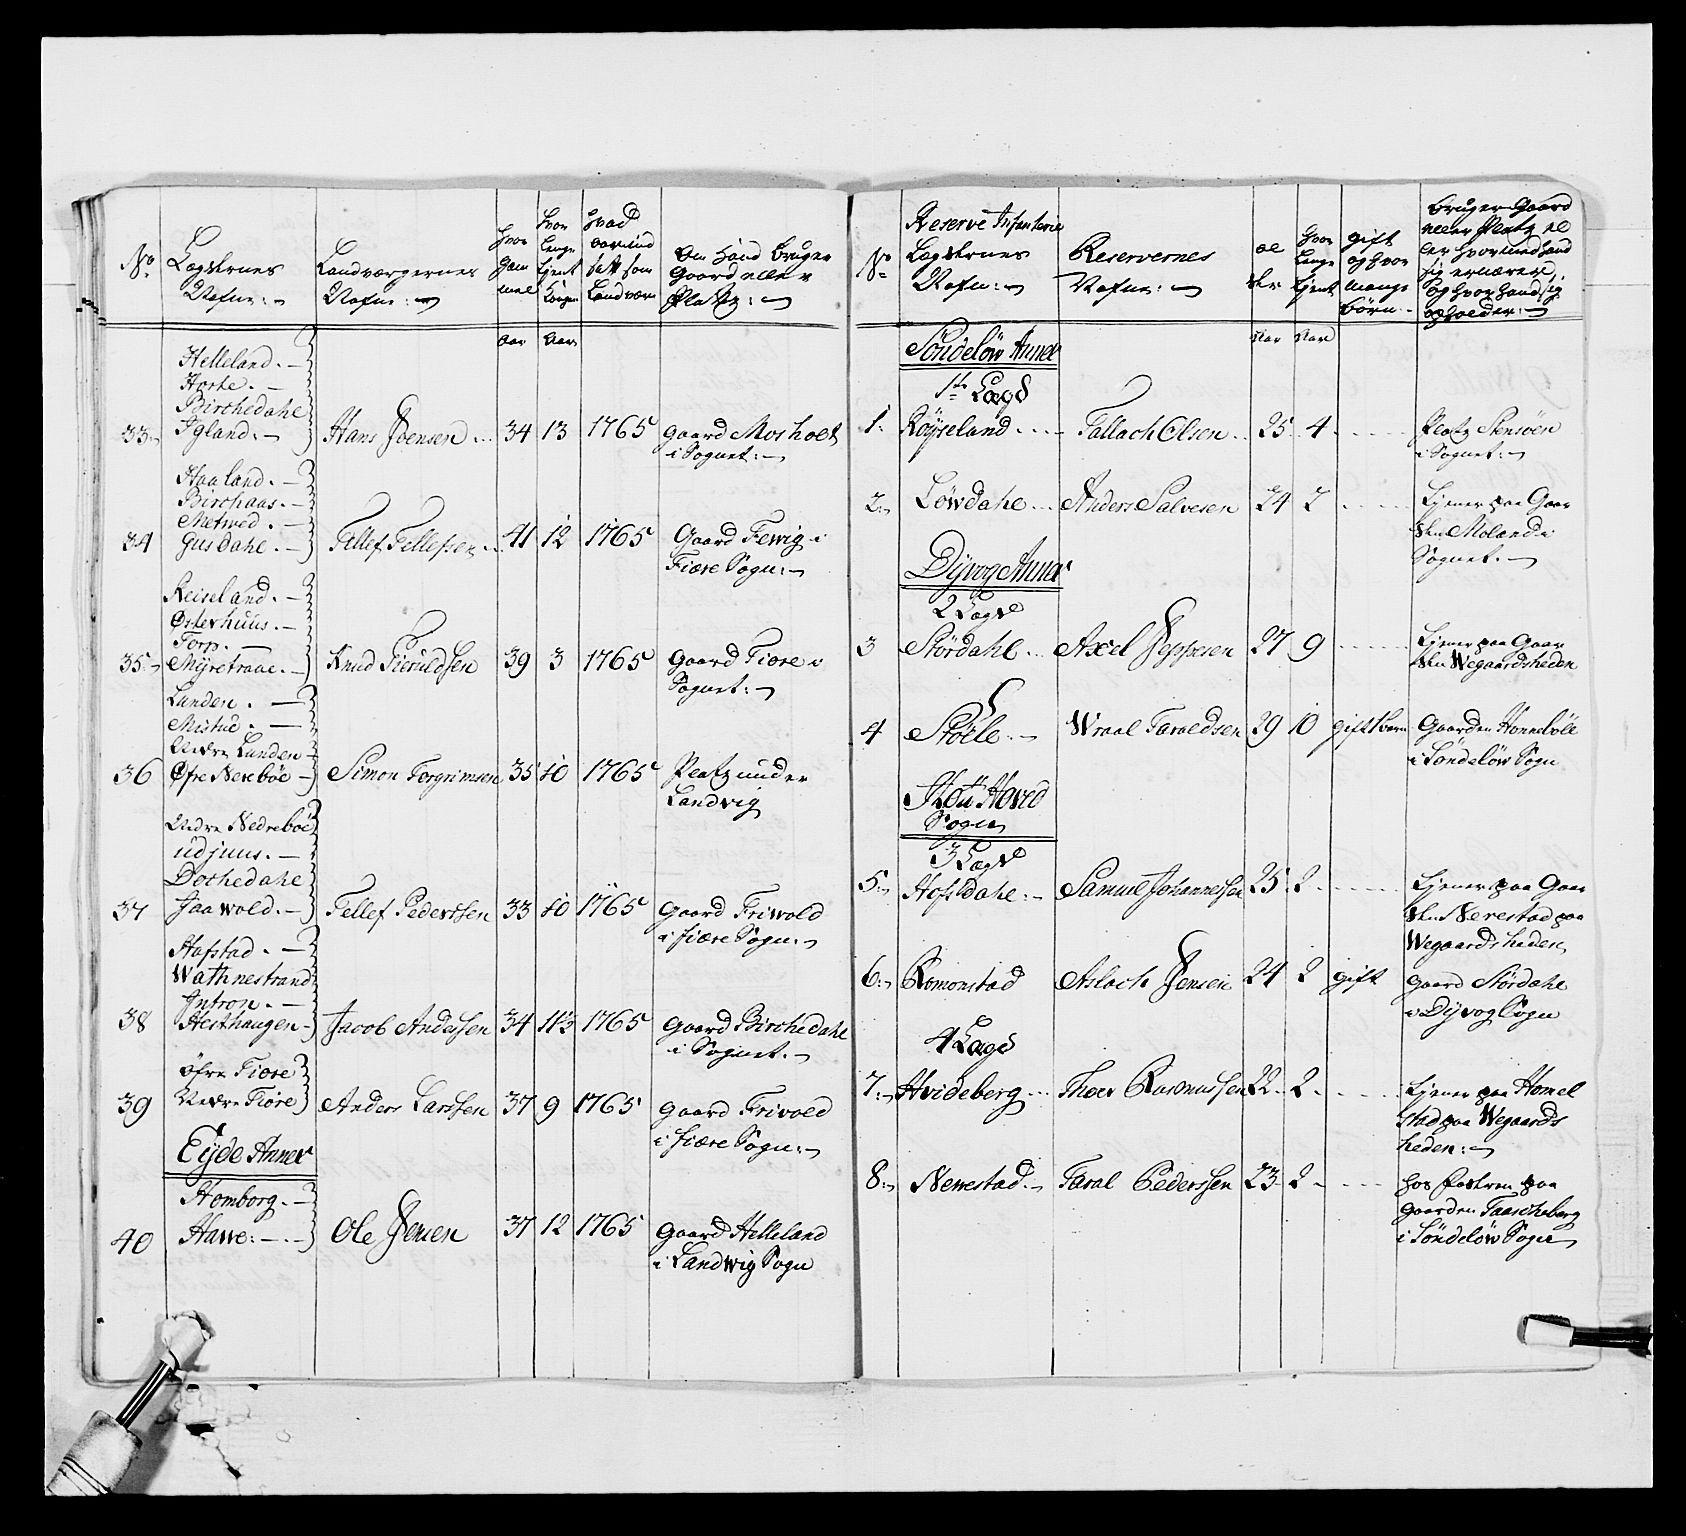 No
Lægdernes
Nafne:
Landværgernes
Nafne:
hvor
gam
mel
hvor
lenge
tjent
Kongen
hvad
Aar ind
satt som
Landværn
Om hand bruger
Gaard eller
Platz:
Aar Aar
Helleland.
Horte.
Birchedahl
33. Igland. Hans Joensen 34 13 1765 gaard Mosholt
i Sognet:
Haaland.
Birchaas.
Metwed.
34 Gusdahl. Tellef Tellefsen 41 12 1765 Gaard Fewig i
Fiære Sogn:
Reiseland.
Østerhuus.
Torp.
35. Myretraae. Knud Sieruldsen 39 3 1765 Gaard Fiore i
Sognet:
Lunden.
Mistue.
Nedre Lunden
36 Øfre Nerebøe Simon Torgrimsen 35 10 1765 Platz under
Landvig
Nedre Nedrebøe
udjuus.
Dochedahl
37 Jaawold. Tellef Pederssen 33 10 1765 Gaard Friwold
i Fiære Sogn:
Hafstad.
Wathnestrand
Intron.
38 Hesthaugen Jacob Anderssen 34 11½ 1765 Gaard Birchedahl
i Sognet.
Øfre Fiore
39 Nedre Fiore Anders Larssen 37 9 1765 gaard Frivold
i Fiære Sogn:
Eyde Annex
Homborg.
40 Hawe: Ole Jensen 37 12 1765 Gaard Helleland
i Landwig Sogn
No
Reserve Infanterie
Lægdernes
Nafn:
Reservernes
Nafne:
al
der
hvor
lenge
tjent
gift
og hvor
mange
børn.
bruger Gaard
eller Platz el
ler hvormed hand
sig ernærer,
og hvor hand sig
opholder:
Aar Aar
Søndeløw Annex
1te Lægd
1. Røyseland Tallach Olsen 25 4 Platz Stensøen
i Sognet:
2. Løwdahl Anders Salvesen 24 2 tjener paa Gaar
den Moland i
Sognet.
Dyvog Annex
2 Lægd
3 Størdahl Axel Jeppesen 27 9 tjener paa Gaar
den Wegaardsheden
4 Støele Wraal Taraldsen 29 10 gift 1 barn Gaarden Honnebøle
i Søndeløw Sogn
Hoved
Sogn
3 Lægd
5. Hofsdahl: Samuel Johannessen 25 2 tjener paa Gaar
den Nerestad paa
Wegaardsheden
6. Romonstad Aslach Jensen 24 2 gift gaard Størdahl
i Dyvog Sogn
4 Lægd
7. Hvideberg Thoer Rasmussen 22 2 tjener paa Homel
stad paa Wegaards
heden:
8. Nerrestad. Taral Pederssen 23 2 hos fadren paa
gaarden Taascheberg
i Søndeløw Sogn